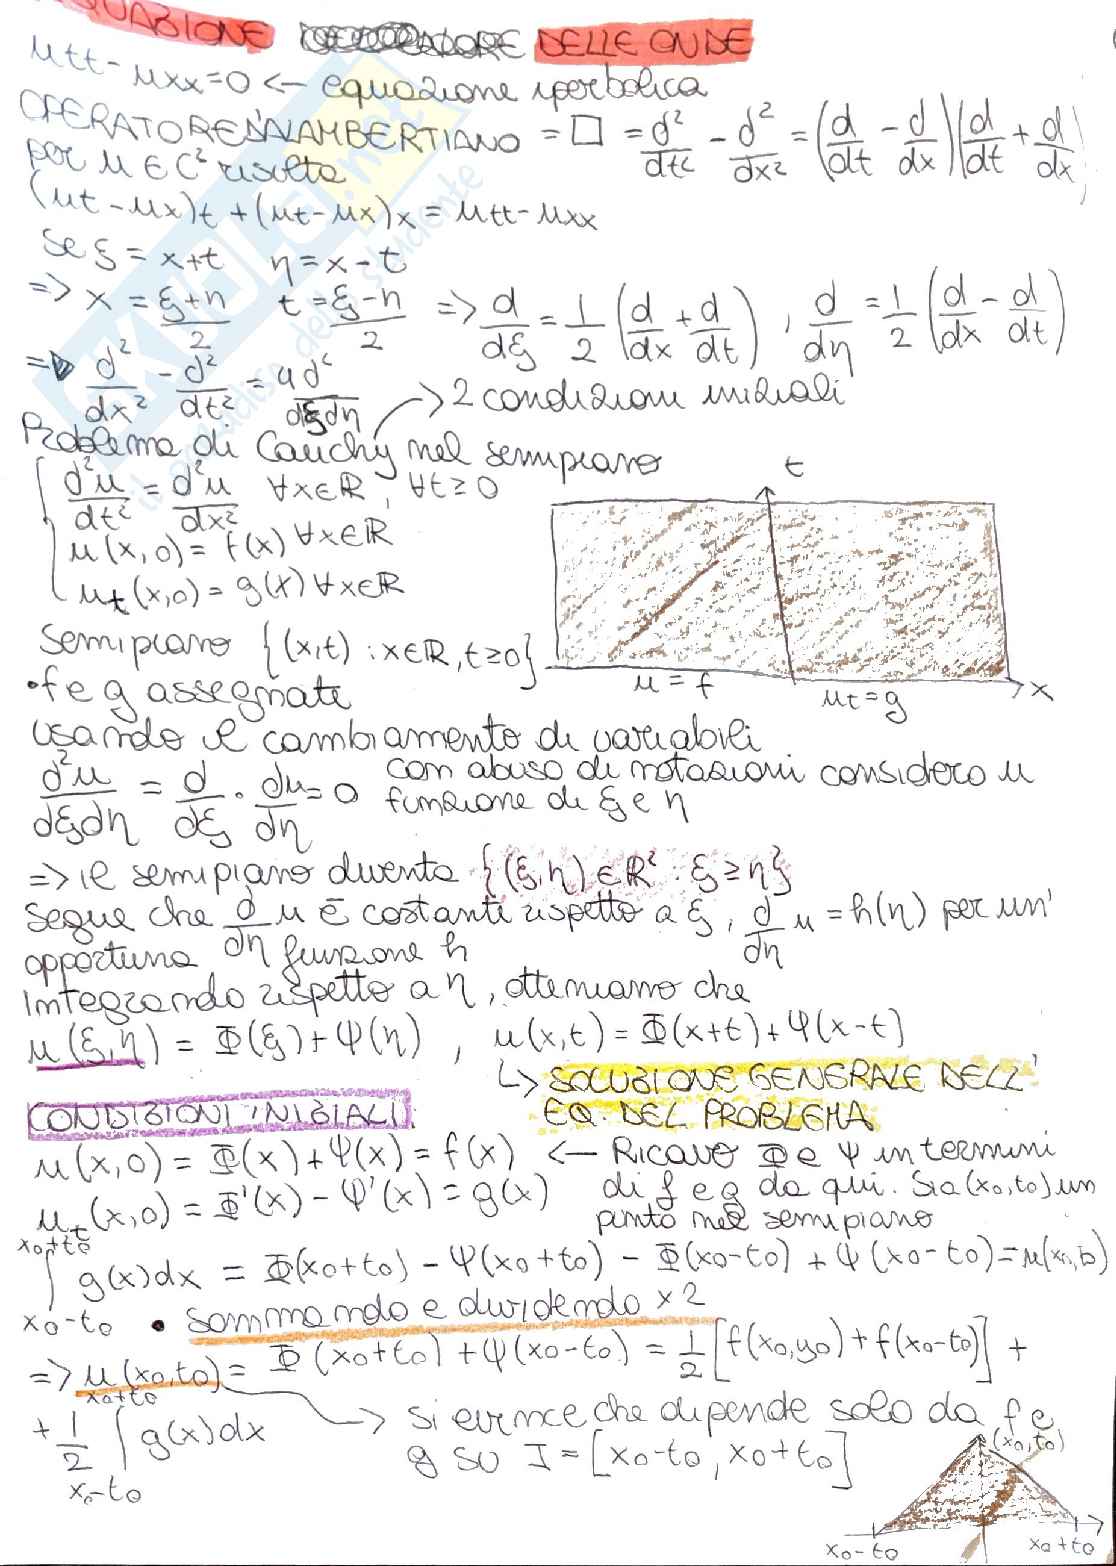 EQUAZIONE DELLE ONDE
utt - uxx = 0 <- equazione iperbolica
OPERATORE D'ALAMBERTIANO = □ = d²/dt² - d²/dx² = (d/dt - d/dx)(d/dt + d/dx)
per u ∈ C² risulta
(ut - ux)t + (ut - ux)x = utt - uxx
Se ξ = x+t η = x-t
=> x = (ξ+η)/2 t = (ξ-η)/2 => d/dξ = 1/2 (d/dx + d/dt) , d/dη = 1/2 (d/dx - d/dt)
=> d²/dx² - d²/dt² = 4d²/dξdη
-> 2 condizioni iniziali
Problema di Cauchy nel semipiano
d²u/dt² = d²u/dx² ∀x∈ℝ, ∀t≥0
u(x,0) = f(x) ∀x∈ℝ
ut(x,0) = g(x) ∀x∈ℝ
t
x
u = f
ut = g
Semipiano {(x,t) : x∈ℝ, t≥0}
•f e g assegnate
Usando il cambiamento di variabili
d²u/dξdη = d/dξ · du/dη = 0 con abuso di notazioni considero u
funzione di ξ e η
=> il semipiano diventa {(ξ,η) ∈ ℝ² : ξ ≥ η}
Segue che d/dη u è costante rispetto a ξ, d/dη u = h(η) per un'
opportuna funzione h
Integrando rispetto a η, otteniamo che
u(ξ,η) = Φ(ξ) + Ψ(η) , u(x,t) = Φ(x+t) + Ψ(x-t)
↳ SOLUZIONE GENERALE DELL'
EQ. DEL PROBLEMA
CONDIZIONI INIZIALI
u(x,0) = Φ(x) + Ψ(x) = f(x) <- Ricavo Φ e Ψ in termini
ut(x,0) = Φ'(x) - Ψ'(x) = g(x) di f e g da qui. Sia (x0,t0) un
punto nel semipiano
∫_{x0-t0}^{x0+t0} g(x)dx = Φ(x0+t0) - Ψ(x0+t0) - Φ(x0-t0) + Ψ(x0-t0) = u(x0,t0)
• Sommando e dividendo x 2
=> u(x0,t0) = Φ(x0+t0) + Ψ(x0-t0) = 1/2 [f(x0,y0) + f(x0-t0)] +
+ 1/2 ∫_{x0-t0}^{x0+t0} g(x)dx
-> si evince che dipende solo da f e
g su I = [x0-t0, x0+t0]
(x0,t0)
x0-t0
x0+t0